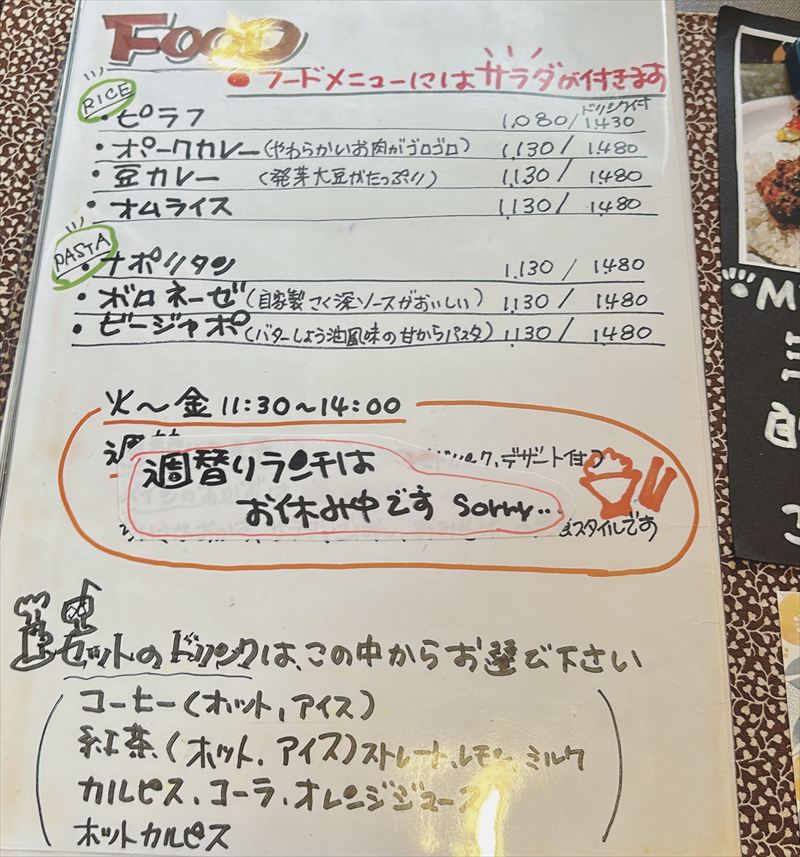 FOOD
• フードメニューにはサラダが付きます
RICE
ドリンク付
・ピラフ 1,080/1,430
・ポークカレー(やわらかいお肉がゴロゴロ) 1,130/1,480
・豆カレー (発芽大豆がたっぷり) 1,130/1,480
・オムライス 1,130/1,480
PASTA
・ナポリタン 1,130/1,480
・ボロネーゼ(自家製さく深ソースがおいしい) 1,130/1,480
・ビージャポ(バターしょう油風味の甘からパスタ) 1,130/1,480
火〜金 11:30〜14:00
ドリンク、デザート付
週替りランチは
お休み中です sorry..
スタイルです
セットのドリンクは、この中からお選び下さい
コーヒー(ホット,アイス)
紅茶(ホット,アイス)ストレート、レモン、ミルク
カルピス、コーラ、オレンジジュース
ホットカルピス
M